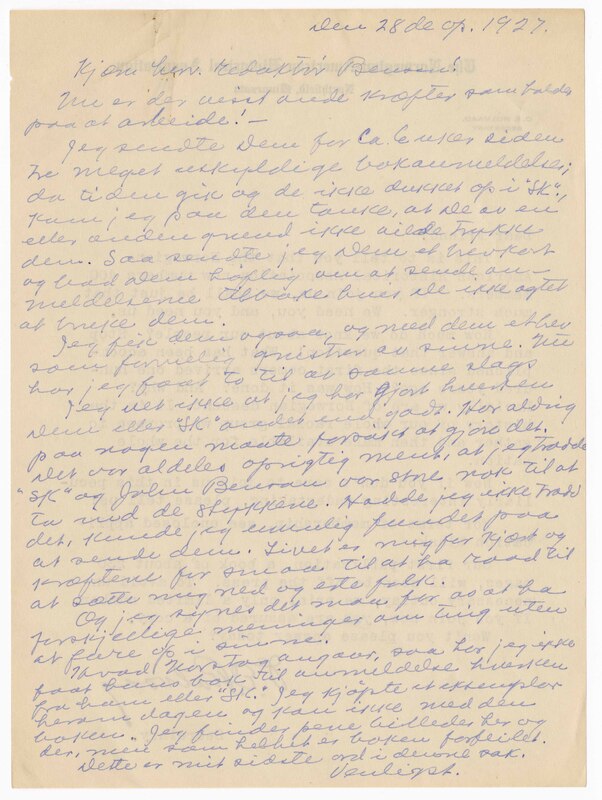 Den 28de sp. 1927.
Kjære herr. Redaktør Benson!
Nu er der visst onde kræfter som holder
paa at arbeide! —
Jeg sendte Dem for Ca. 6 uker siden
to meget uskyldige bokanmeldelser;
da tiden gik og de ikke dukket op i "SK",
kom jeg paa den tanke, at De av en
eller anden grund ikke vilde trykke
dem. Saa sendte jeg Dem et brevkort
og bad Dem høflig om at sende an-
meldelsene tilbake hvis De ikke agtet
at bruke dem.
Jeg fik dem ogsaa, og med dem et brev
som formelig gnistrer av sinne. Nu
har jeg faat to til at samme slags
Jeg vet ikke at jeg har gjort hverken
Dem eller "SK" andet end godt. Har aldrig
paa nogen maate forsøkt at gjøre det.
Det var aldeles oprigtig ment, at jeg trodde
"SK" og John Benson var store nok til at
ta med de stykkene. Hadde jeg ikke trodd
det, kunde jeg umulig fundet paa
at sende dem. Livet er mig for kjært og
kræftene for smaa til at ha raad til
at sætte mig ned og erte folk.
Og jeg synes det maa for os at ha
forskjellige meninger om ting uten
at fare op i sinne.
Hvad Norstog angaar, saa har jeg ikke
faat hans bok til anmeldelse hverken
fra ham eller "SK". Jeg kjøpte et eksemplar
herom dagen og kan ikke med den
boken. Jeg finder pene billeder her og
der, men som helhet er boken forfeilet.
Dette er mit sidste ord i denne sak.
Venligst.